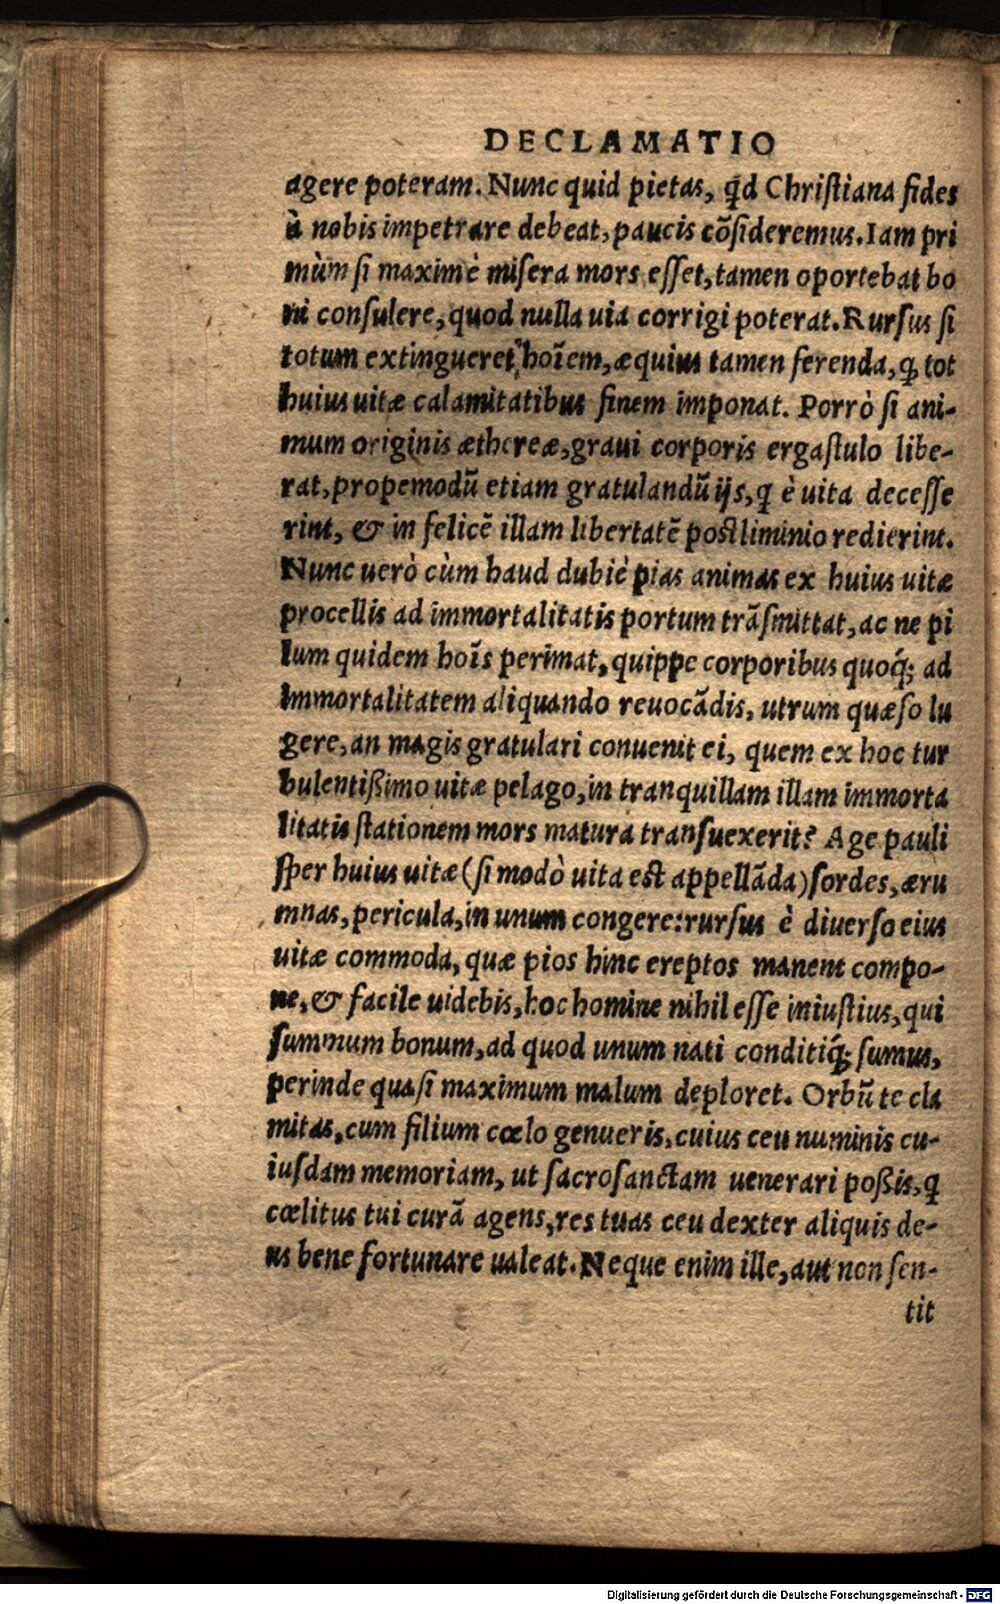 DECLAMATIO
agere poteram. Nunc quid pietas, qd Christiana fides
à nobis impetrare debeat, paucis cōsideremus. Iam pri
mùm si maximè misera mors esset, tamen oportebat bo
ni consulere, quod nulla uia corrigi poterat. Rursus si
totum extingueret hoīem, æquius tamen ferenda, ꝙ tot
huius uitæ calamitatibus finem imponat. Porrò si ani-
mum originis æthereæ, graui corporis ergastulo libe-
rat, propemodū etiam gratulandū ijs, ꝗ è uita decesse
rint, & in felicē illam libertatē postliminio redierint.
Nunc uerò cùm haud dubiè pias animas ex huius uitæ
procellis ad immortalitatis portum trāsmittat, ac ne pi
lum quidem hoīs perimat, quippe corporibus quoq́; ad
immortalitatem aliquando reuocādis, utrum quæso lu
gere, an magis gratulari conuenit ei, quem ex hoc tur
bulentißimo uitæ pelago, in tranquillam illam immorta
litatis stationem mors matura transuexerit? Age pauli
sper huius uitæ (si modò uita est appellāda) sordes, æru
mnas, pericula, in unum congere: rursus è diuerso eius
uitæ commoda, quæ pios hinc ereptos manent compo-
ne, & facile uidebis, hoc homine nihil esse iniustius, qui
summum bonum, ad quod unum nati conditiq́; sumus,
perinde quasi maximum malum deploret. Orbū te cla
mitas, cum filium cœlo genueris, cuius ceu numinis cu-
iusdam memoriam, ut sacrosanctam uenerari poßis, ꝗ
cœlitus tui curā agens, res tuas ceu dexter aliquis de-
us bene fortunare ualeat. Neque enim ille, aut non sen-
tit
Digitalisierung gefördert durch die Deutsche Forschungsgemeinschaft - DFG